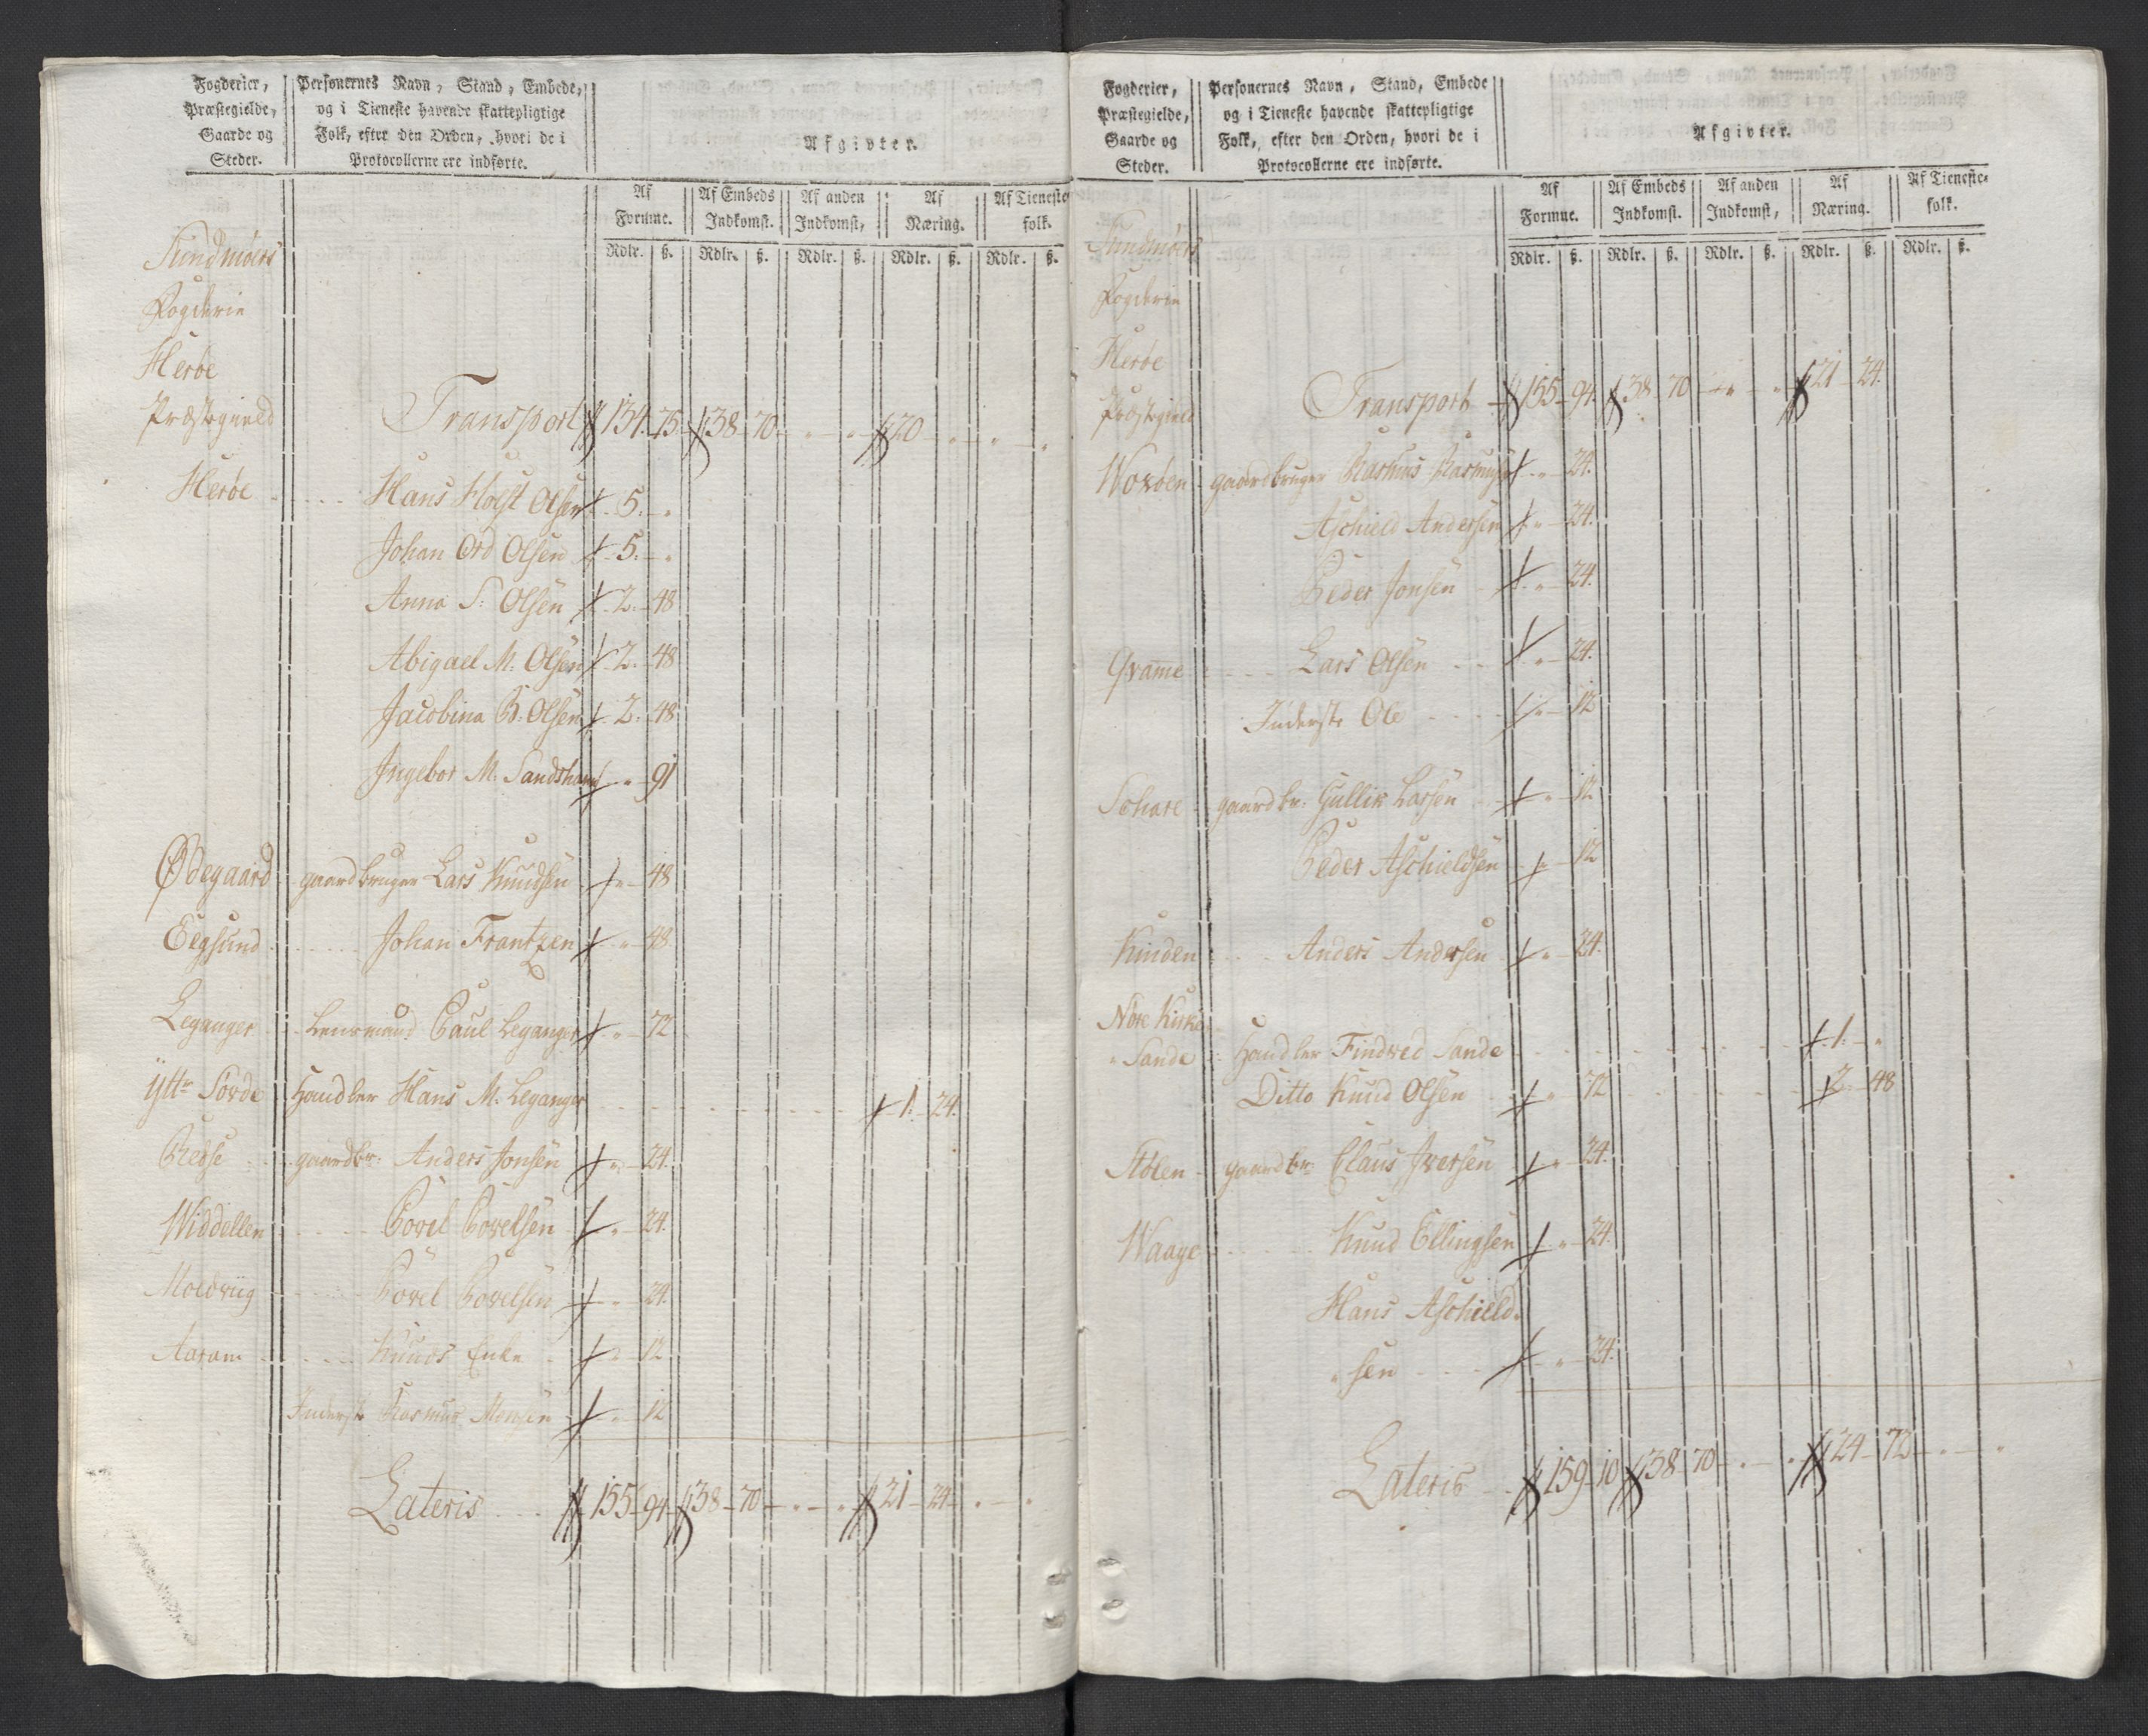 Fogderier, Præstegielde, Gaarde og Steder.
Personernes Navn, Stand, Embede, og i Tieneste havende skattepligtige Folk, efter den Orden, hvori de i Protocollerne ere indførte.
Afgivter.
Af Formue. Af Embeds Indkomst. Af anden Indkomst, Af Næring. Af Tieneste folk.
Rdlr. ß. Rdlr. ß. Rdlr. ß. Rdlr. ß. Rdlr. ß.
Sundmøers
Fogderie
Herøe
Præstegield Transport 134. 75 138 70 " " 20 " " "
Herøe Hans Holst Olsen 5. "
Johan Ord Olsen 5. "
Anna S: Olsen 2. 48
Abigael M. Olsen 2. 48
Jacobina B. Olsen 2. 48
Ingebor M. Sandshavn " 91
Ødegaard gaardbruger Lars Knudsen " 48
Eegsund Johan Frantzen " 48
Leganger Lensmand Paul Leganger " 72
Ytte Sørde Handler Hans M. Leganger 1. 24.
gaardbr: Anders Jonsen " 24.
Povel Povelsen " 24.
Povel Povelsen " 24.
Aaram Knuds Enke " 12
Inderste Rasmus Monsen " 12
Lateris 155 94 138 70 " " 21 24 " "
Fogderier, Præstegielde, Gaarde og Steder.
Personernes Navn, Stand, Embede og i Tieneste havende skattepligtige Folk, efter den Orden, hvori de i Protocollerne ere indførte.
Afgivter.
Af Formue. Af Embeds Indkomst. Af anden Indkomst, Af Næring. Af Tieneste- folk.
Rdlr. ß. Rdlr. ß. Rdlr. ß. Rdlr. ß. Rdlr. ß.
Sundmøers
Fogderie
Herøe
Præstegield Transport 155 94. 138 70 " " 21 24.
gaardbruger Rasmus Rasmusen " 24.
Aschield Andersen " 24.
Peder Jonsen " 24.
Qvame Lars Olsen " 24.
Inderste Ole " 12
gaardbr: Gullik Larsen " 12
Peder Aschieldsen " 12
Anders Andersen " 24.
Nøre Kirke
" Sande Handler Findved Sande 1. "
Ditto Knud Olsen " 72 2. 48
Stølen gaardbr: Claus Iversen " 24.
Waage Knud Ellingsen " 24.
Hans Aschield-
" sen " 24.
Lateris 159 10 138 70 " " 24 72 " "